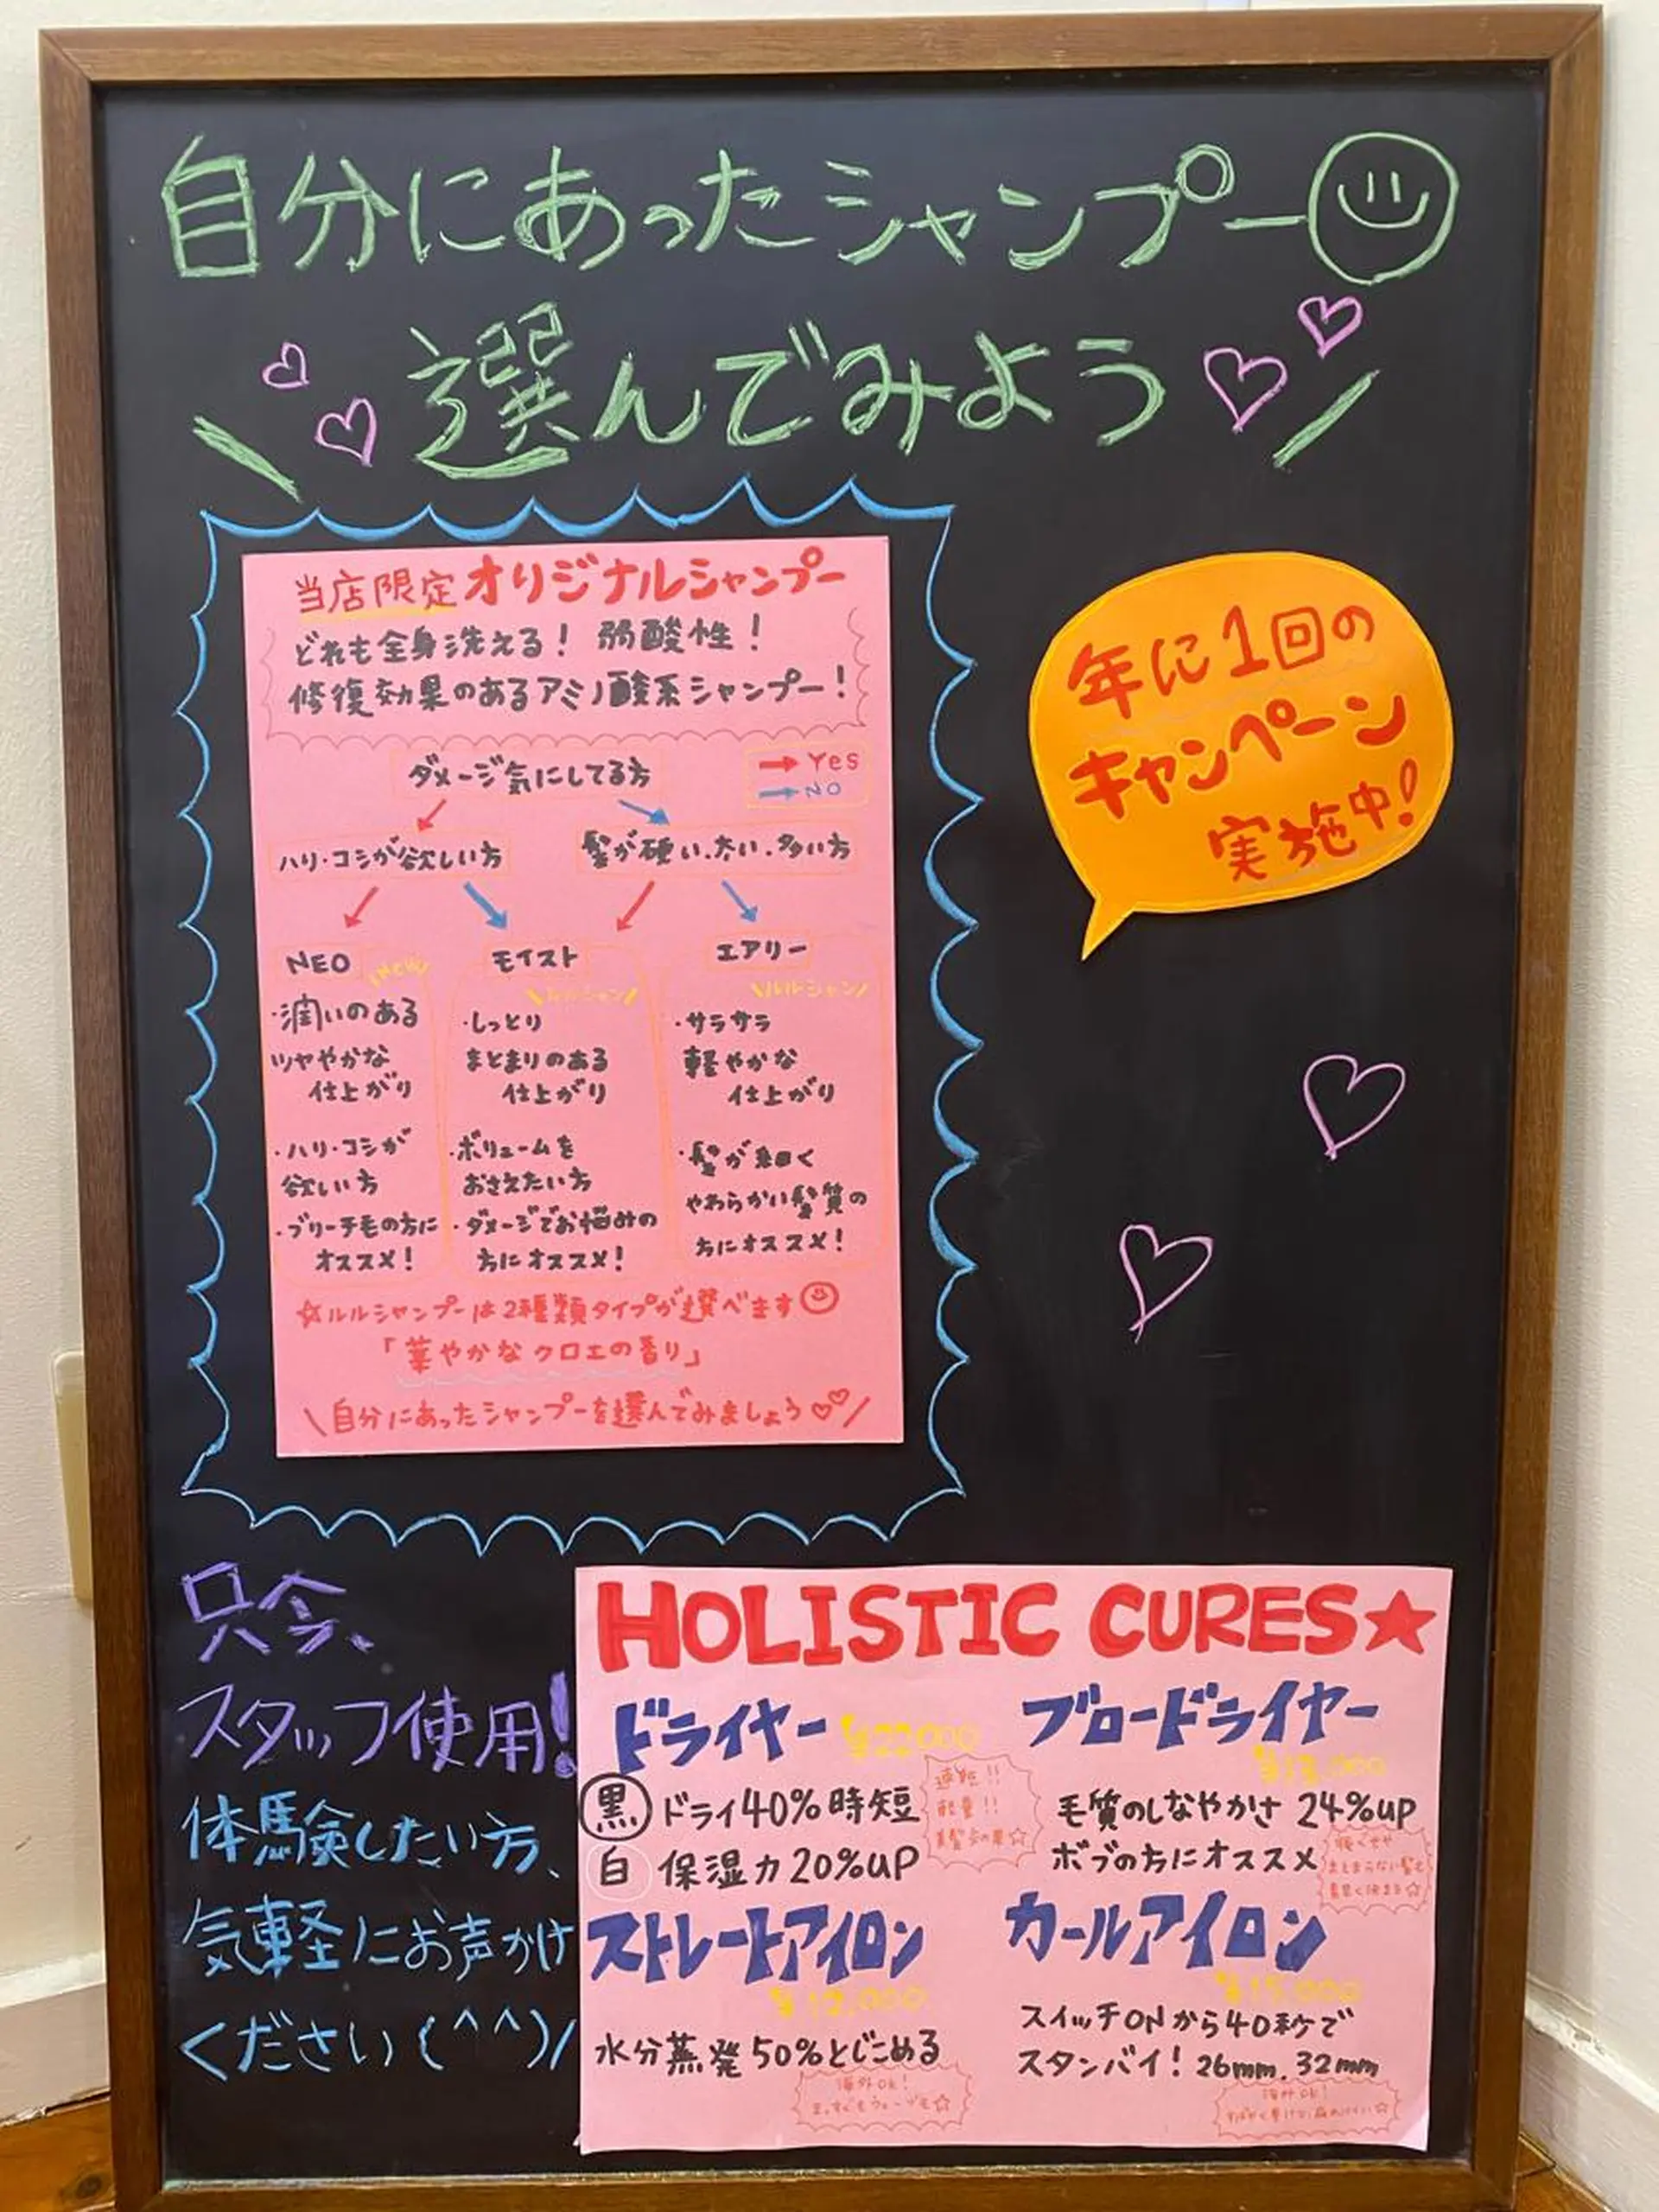 自分にあったシャンプー
選んでみよう
当店限定オリジナルシャンプー
どれも全身洗える! 弱酸性!
修復効果のあるアミノ酸系シャンプー!
ダメージ気にしてる方
→ Yes
→ NO
ハリ・コシが欲しい方
髪が硬い.太い.多い方
NEO
\New/
・潤いのある
ツヤやかな
仕上がり
・ハリ・コシが
欲しい方
・ブリーチ毛の方に
オススメ!
モイスト
\ルルシャン/
・しっとり
まとまりのある
仕上がり
・ボリュームを
おさえたい方
・ダメージでお悩みの
方にオススメ!
エアリー
\ルルシャン/
・サラサラ
軽やかな
仕上がり
・髪が細く
やわらかい髪質の
方にオススメ!
☆ルルシャンプーは2種類タイプが選べます
「華やかなクロエの香り」
\自分にあったシャンプーを選んでみましょう♡♡/
年に1回の
キャンペーン
実施中!
只今、
スタッフ使用!
体験したい方、
気軽にお声かけ
ください(^^)/
HOLISTIC CURES★
ドライヤー ¥22000
黒 ドライ40%時短
白 保湿力20%UP
速乾!!
軽量!!
ブロードライヤー
毛質のしなやかさ 24%UP
ボブの方にオススメ
ストレートアイロン
水分蒸発50%とじこめる
海外OK!
カールアイロン
¥15,000
スイッチONから40秒で
スタンバイ! 26mm.32mm
海外OK!